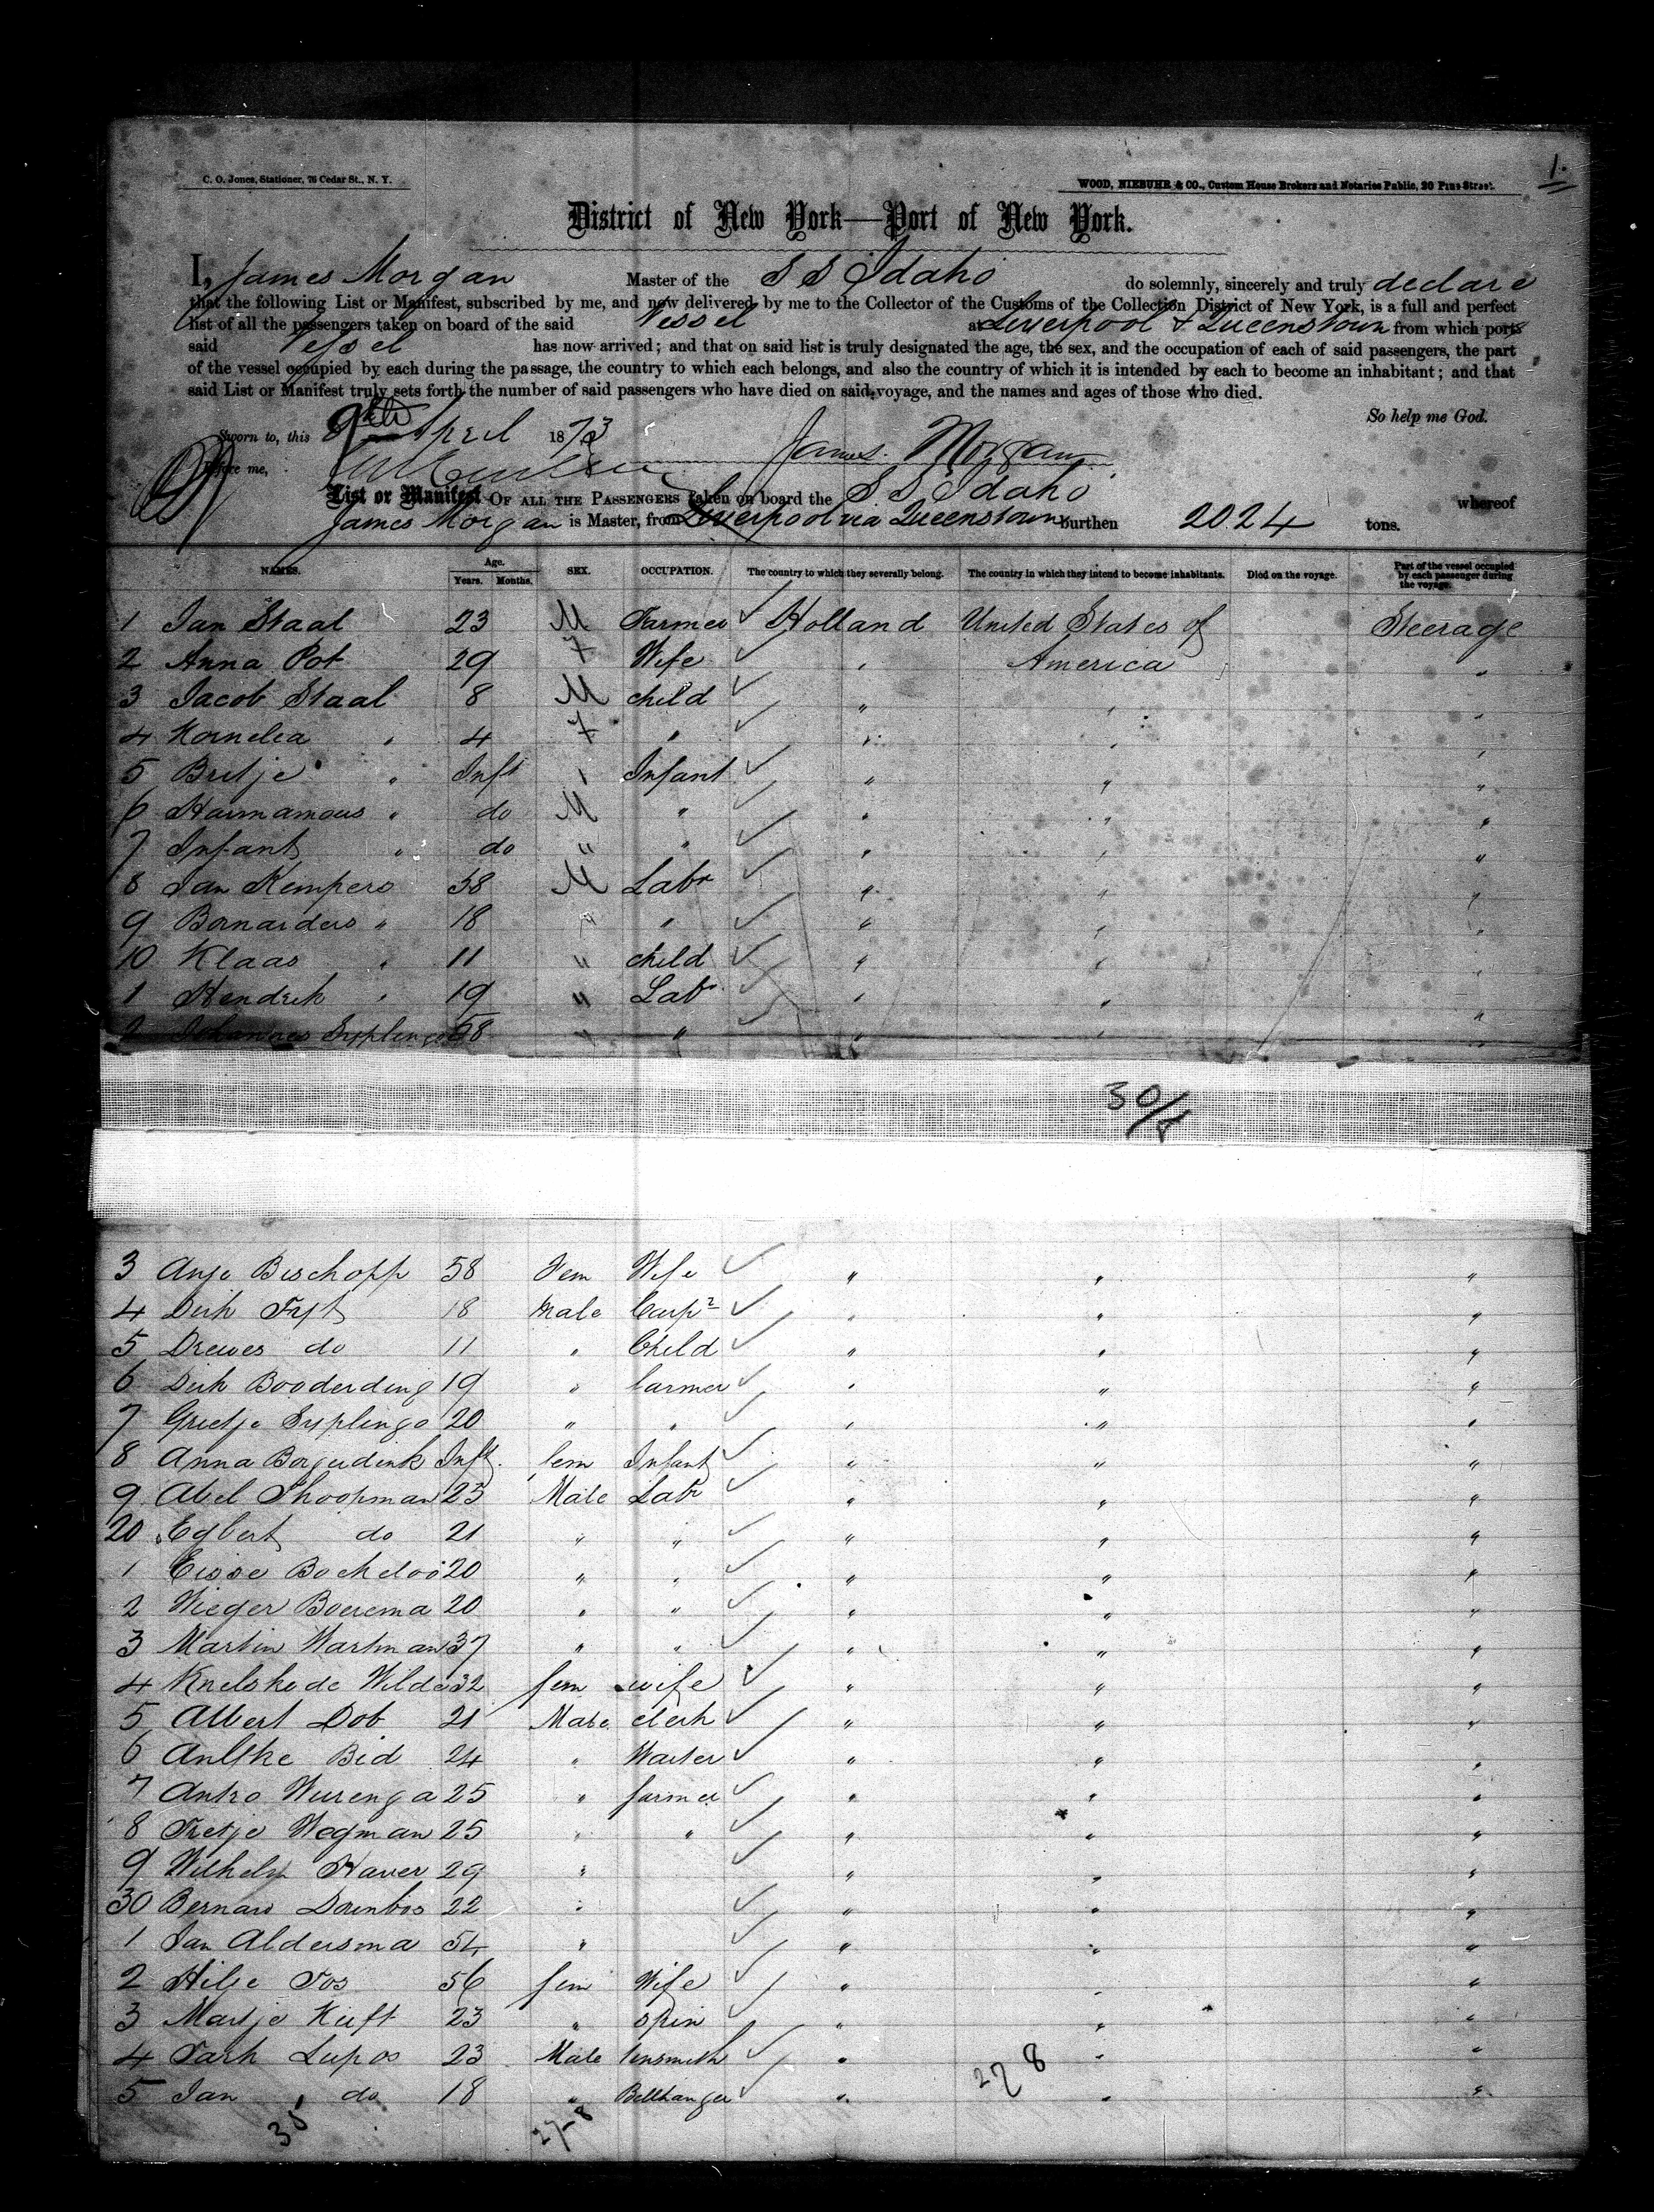 1.
C. O. Jones, Stationer, 76 Cedar St., N. Y.
WOOD, NIEBUHR & CO., Custom House Brokers and Notaries Public, 20 Pine Street.
District of New York—Port of New York.
I, James Morgan Master of the S S Idaho do solemnly, sincerely and truly declare
that the following List or Manifest, subscribed by me, and now delivered by me to the Collector of the Customs of the Collection District of New York, is a full and perfect
list of all the passengers taken on board of the said Vessel at Liverpool & Queenstown from which ports
said Vessel has now arrived; and that on said list is truly designated the age, the sex, and the occupation of each of said passengers, the part
of the vessel occupied by each during the passage, the country to which each belongs, and also the country of which it is intended by each to become an inhabitant; and that
said List or Manifest truly sets forth the number of said passengers who have died on said voyage, and the names and ages of those who died.
So help me God.
Sworn to, this 9th April 1873 James Morgan
Before me,
List or Manifest OF ALL THE PASSENGERS taken on board the S S Idaho whereof
James Morgan is Master, from Liverpool via Queenstown burthen 2024 tons.
NAMES. Age. Years. Months. SEX. OCCUPATION. The country to which they severally belong. The country in which they intend to become inhabitants. Died on the voyage. Part of the vessel occupied by each passenger during the voyage.
1 Jan Staal 23 M Farmer Holland United States of Steerage
2 Anna Pot 29 F Wife " America "
3 Jacob Staal 8 M child " " "
4 Kornelia " 4 F " " " "
5 Bretje " Inft " Infant " " "
6 Harmamous " do M " " " "
7 Infant " do " " " " "
8 Jan Kempers 38 M Labr " " "
9 Bernarders " 18 " " " " "
10 Klaas " 11 " child " " "
1 Hendrik " 19 " Labr " " "
2 Johannes Syplinga 58 " " " " "
30/8
3 Anje Bischopp 58 Fem Wife " " "
4 Dirk Tryt 18 Male Carpr " " "
5 Drewes do 11 " Child " " "
6 Dirk Booderding 19 " farmer " " "
7 Grietje Syplinga 20 " " " " "
8 Anna Borgerdink Inft fem Infant " " "
9 Abel Shoopman 23 Male Labr " " "
20 Egbert do 21 " " " " "
1 Eisse Bockeloo 20 " " " " "
2 Wieger Boerema 20 " " " " "
3 Martin Wartman 37 " " " " "
4 Knelske de Wilde 32 fem wife " " "
5 Albert Dob 21 Male clerk " " "
6 Anltke Bid 24 " Waiter " " "
7 Antro Wurenga 25 " farmer " " "
8 Tretje Wegman 25 " " " " "
9 Wilhelm Haver 29 " " " "
30 Bernard Dornbos 22 " " " "
1 Jan Aldersma 54 " " " "
2 Hilje Tos 56 fem Wife " " "
3 Martje Kieft 23 " spin " " "
4 Tark Lupos 23 Male tinsmith " " "
5 Jan do 18 " Bellhanger " " "
27 8
35
27-8